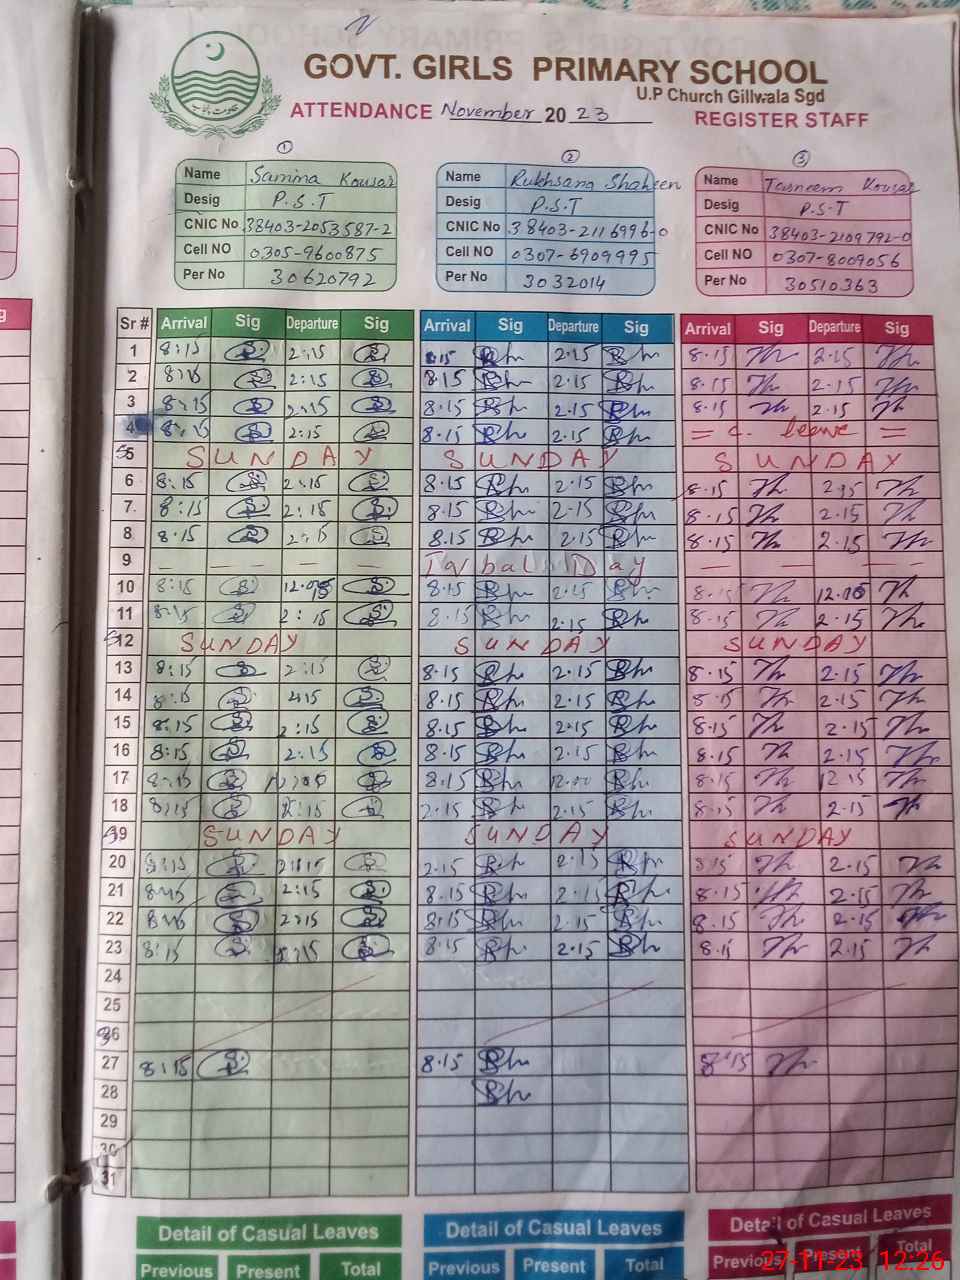 GOVT. GIRLS PRIMARY SCHOOL
U.P Church Gillwala Sgd
حکومت پنجاب
ATTENDANCE November 2023 REGISTER STAFF
1 2 3
Name Samina Kousar Name Rukhsana Shaheen Name Tasneem Kousar
Desig P.S.T Desig P.S.T Desig P.S.T
CNIC No 38403-2053587-2 CNIC No 38403-2116996-0 CNIC No 38403-2109792-0
Cell NO 0305-9600875 Cell NO 0307-6909995 Cell NO 0307-8009056
Per No 30620792 Per No 3032014 Per No 30510363
Sr # Arrival Sig Departure Sig Arrival Sig Departure Sig Arrival Sig Departure Sig
1 8:15 2:15 8.15 2.15 8.15 2.15
2 8:15 2:15 8.15 2.15 8.15 2.15
3 8:15 2:15 8.15 2.15 8.15 2.15
4 8:15 2:15 8.15 2.15 = c. leave =
5 SUNDAY SUNDAY SUNDAY
6 8:15 2:15 8.15 2.15 8.15 2.15
7 8:15 2:15 8.15 2.15 8.15 2.15
8 8:15 2:15 8.15 2.15 8.15 2.15
9 — — — — Iqbal Day — — —
10 8:15 8.15 2.15 8.15
11 8:15 2:15 8.15 2.15 8.15 2.15
12 SUNDAY SUNDAY SUNDAY
13 8:15 2:15 8.15 2.15 8.15 2.15
14 8:15 2:15 8.15 2.15 8.15 2.15
15 8:15 2:15 8.15 2.15 8.15 2.15
16 8:15 2:15 8.15 2.15 8.15 2.15
17 8:15 8.15 12.00 8.15 12.15
18 8:15 2:15 2.15 2.15 8.15 2.15
19 SUNDAY SUNDAY SUNDAY
20 8:15 2:15 2.15 2.15 8.15 2.15
21 8:15 2:15 8.15 2.15 8.15 2.15
22 8:15 2:15 8.15 2.15 8.15 2.15
23 8:15 2:15 8.15 2.15 8.15 2.15
24
25
26
27 8:15 8.15 8.15
28
29
30
31
Detail of Casual Leaves Detail of Casual Leaves Detail of Casual Leaves
Previous Present Total Previous Present Total Previous Present Total
27-11-23 12:26